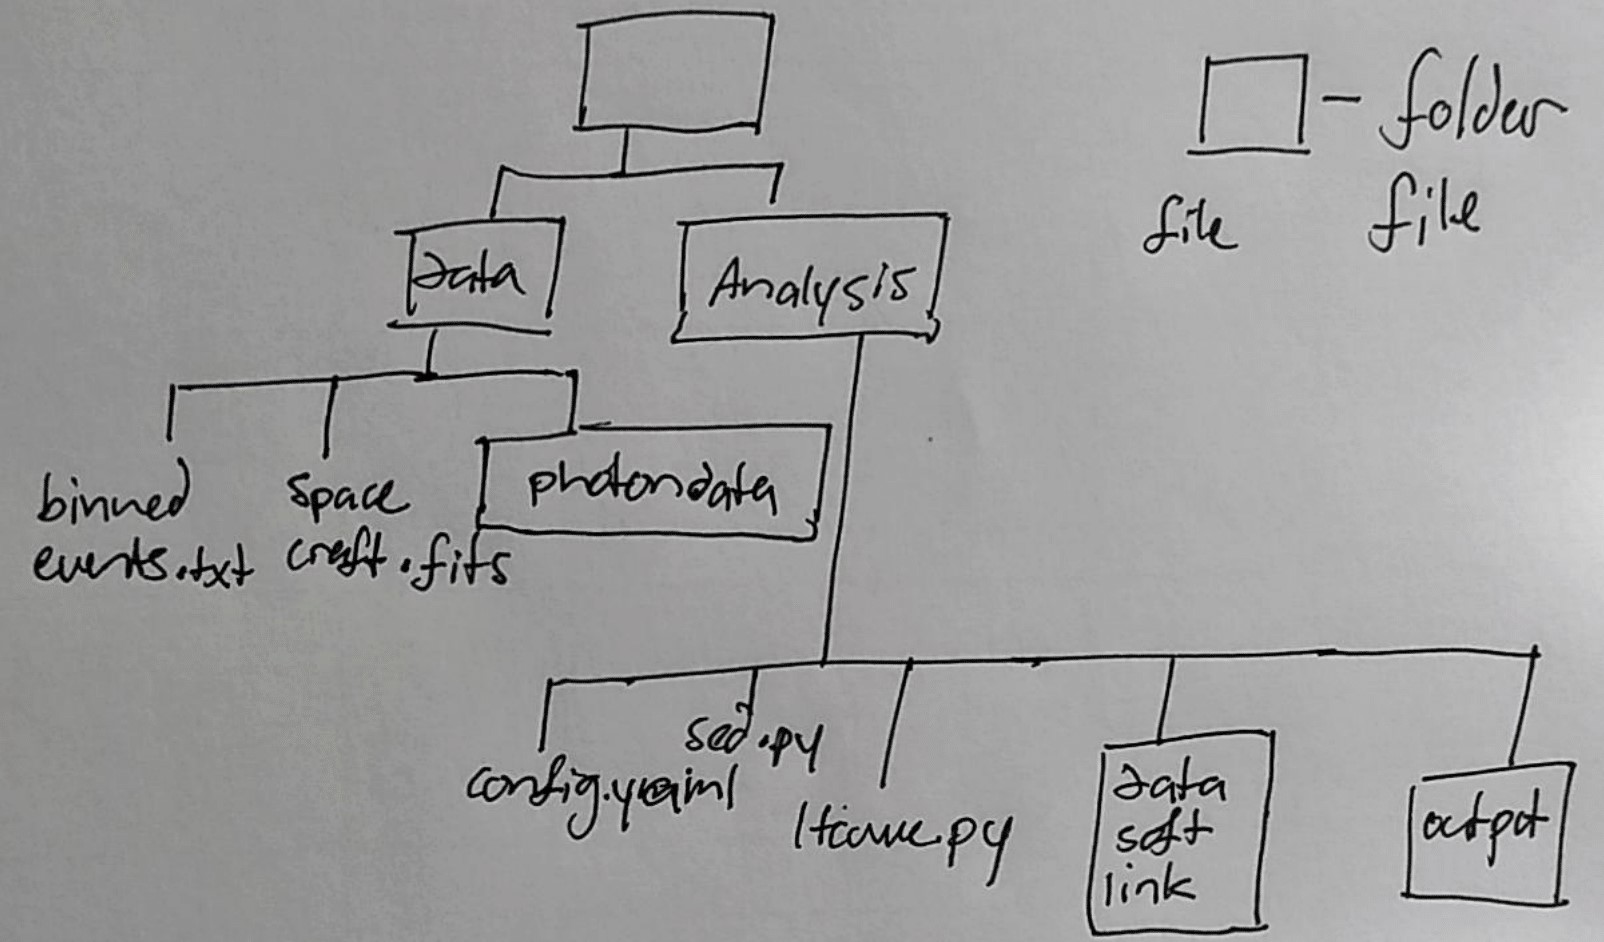 - folder
file file
data
Analysis
binned
events.txt
space
craft.fits
photondata
sed.py
config.yaml
ltcurve.py
data
soft
link
output